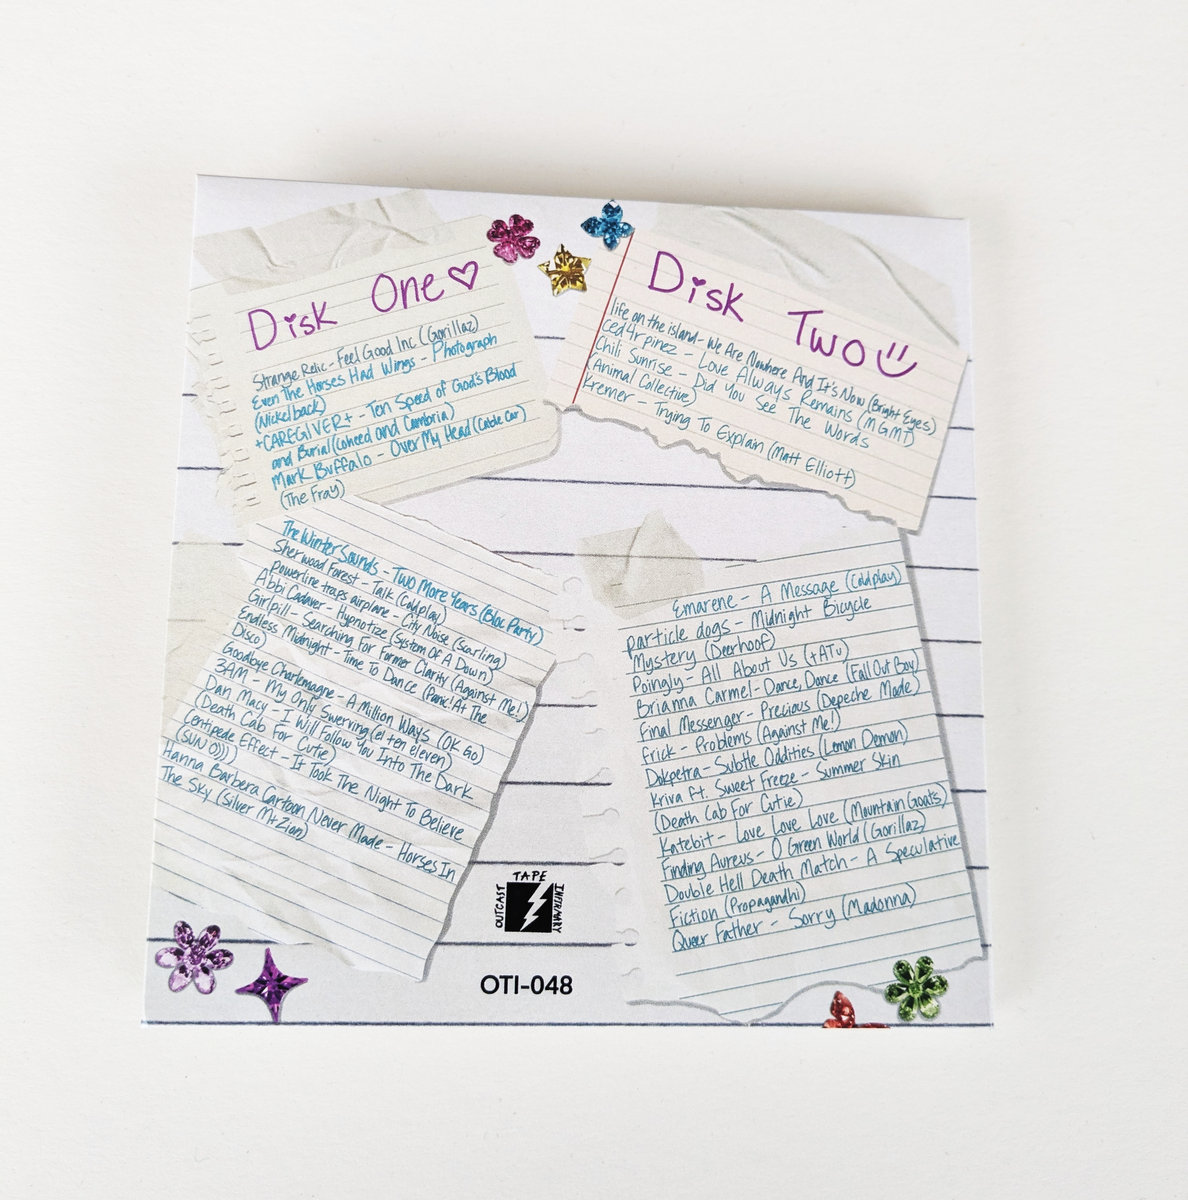 Disk One♡
Strange Relic - Feel Good Inc (Gorillaz)
Even The Horses Had Wings - Photograph
(Nickelback)
+CAREGIVER+ - Ten Speed of God's Blood
and Burial (Coheed and Cambria)
Mark Buffalo - Over My Head (Cable Car)
(The Fray)
The Winter Sounds - Two More Years (Bloc Party)
Sherwood Forest - Talk (Coldplay)
powerline traps airplane - City Noise (Scarling)
Abbi Cadaver - Hypnotize (System Of A Down)
Girlpill - Searching For Former Clarity (Against Me!)
Endless Midnight - Time To Dance (Panic! At The
Disco)
Goodbye Charlemagne - A Million Ways (OK Go)
3AM - My Only Swerving (el ten eleven)
Dan Macy - I Will Follow You Into The Dark
(Death Cab For Cutie)
Centipede Effect - It Took The Night To Believe
(SUN O)))
Hanna Barbera Cartoon Never Made - Horses In
The Sky (Silver Mt Zion)
Disk Two
life on the island - We Are Nowhere And It's Now (Bright Eyes)
ced4r pinez - Love Always Remains (MGMT)
Chili Sunrise - Did You See The Words
(Animal Collective)
Kremer - Trying To Explain (Matt Elliott)
Emarene - A Message (Coldplay)
particle dogs - Midnight Bicycle
Mystery (Deerhoof)
Poingly - All About Us (tATu)
Brianna Carmel - Dance, Dance (Fall Out Boy)
Final Messenger - Precious (Depeche Mode)
frick - Problems (Against Me!)
Dokpetra - Subtle Oddities (Lemon Demon)
Kriva ft. Sweet Freeze - Summer Skin
(Death Cab For Cutie)
Katebit - Love Love Love (Mountain Goats)
Finding Aureus - O Green World (Gorillaz)
Double Hell Death Match - A Speculative
Fiction (Propagandhi)
Queer Father - Sorry (Madonna)
OUTCAST TAPE INFIRMARY
OTI-048